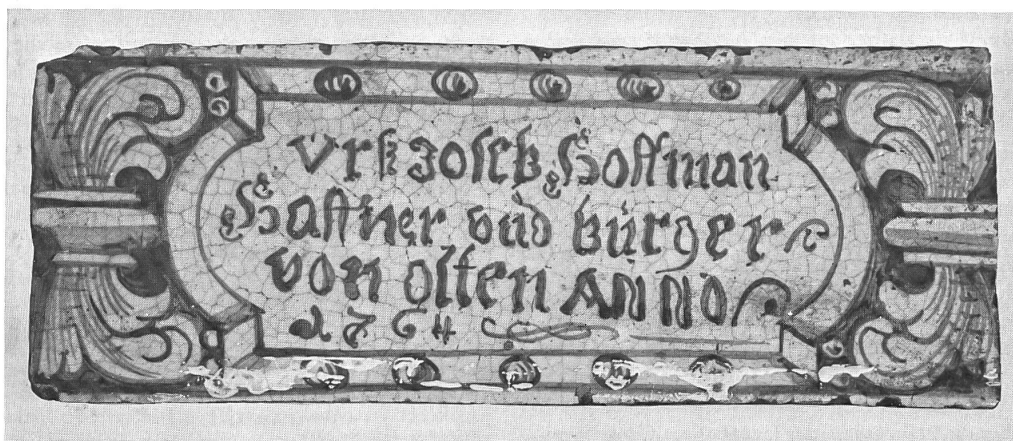 Urß Joseb Hoffman
Haffner und bürger
von olten ANNO
1764